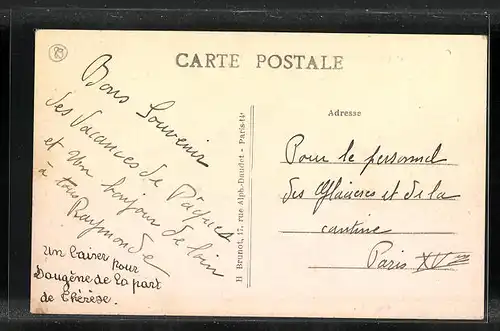 CARTE POSTALE
Bons Souvenir
des Vacances de Pâques
et un bonjour de loin
à tous
Raymonde
Un baiser pour
Daugène de la part
de Thérèse.
H Brunot, 17, rue Alph.-Daudet - Paris-14e
Adresse
Pour le personnel
des Glacières et de la
cantine
Paris XVme